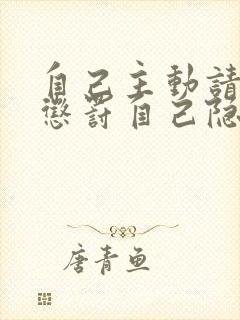 自己主動請
懲罰自己隐
唐青鱼